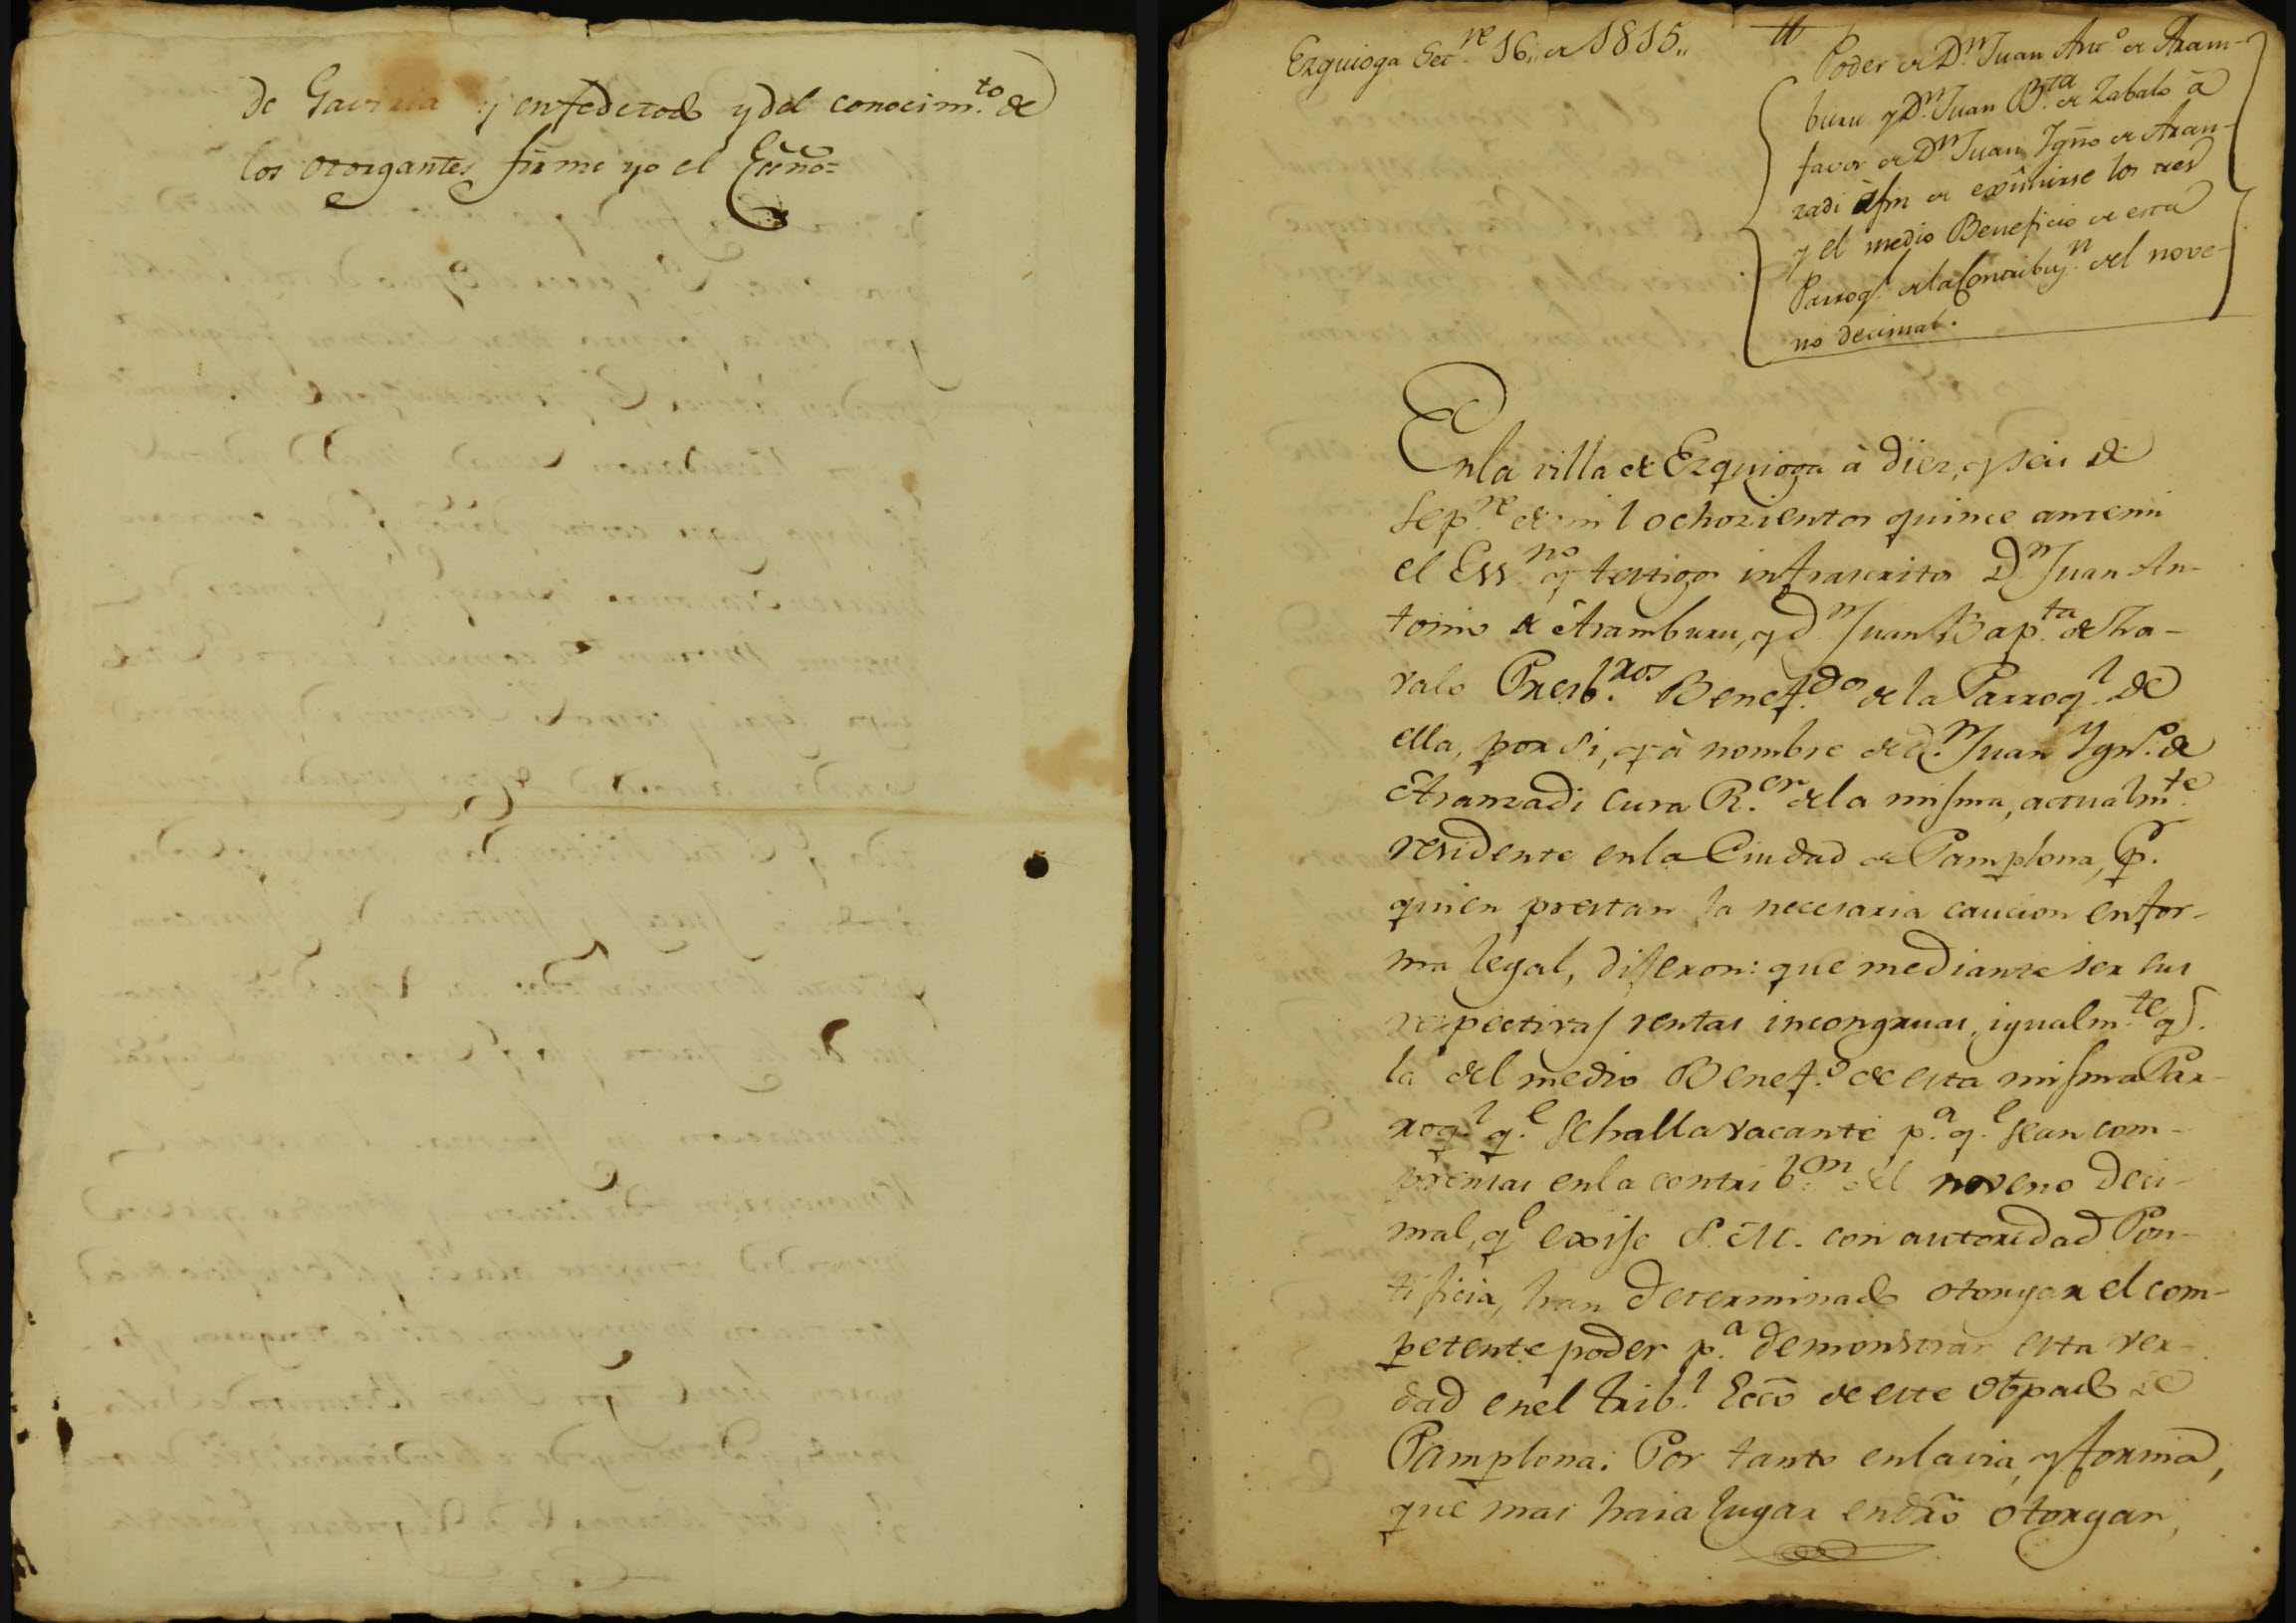 de Gaviria y enfedetodo y del conocim.to de
los otorgantes firme yo el Essno=
Ezquioga Set.re 16,, de 1815,,
Poder de D.n Juan Ant.o de Aram-
buru y D.n Juan B.ta de Zabalo à
favor de D.n Juan Ygno de Aran-
zadi àfin de eximirse los tres
y el medio Beneficio de esta
Parroq.l de la Contribuy.n del nove-
no decimal.
Enla villa de Ezquioga à diez, y seis de
Sep.re de mil ochozientos quince antemi
el Ess.no y testigos infraescritos D.n Juan An-
tonio de Aramburu, y d.n Juan Bap.ta de Za-
valo Presb.ros Benef.dos de la Parroq.l de
ella, por si, y à nombre de d.n Juan Ygn.o de
Aranzadi Cura R.or dela misma, actualm.te
residente enla Ciudad de Pamplona, p.r
quien prestan la necesaria caucion enfor-
ma legal, dijeron: que mediante ser sus
respectivas rentas incongruas, igualm.te q.e
la del medio Benef.o de esta misma Par-
roq.l q.e se halla vacante p.a q.e sean com-
prensas enla contrib.on del noveno Deci-
mal, q.e exije S. M. con autoridad Pon-
tificia, han determinado otorgar el com-
petente poder p.a demonstrar esta ver-
dad enel Trib.l Ecco de este Obpado de
Pamplona: Por tanto enla via, y forma,
que mas haia lugar en dro otorgan,